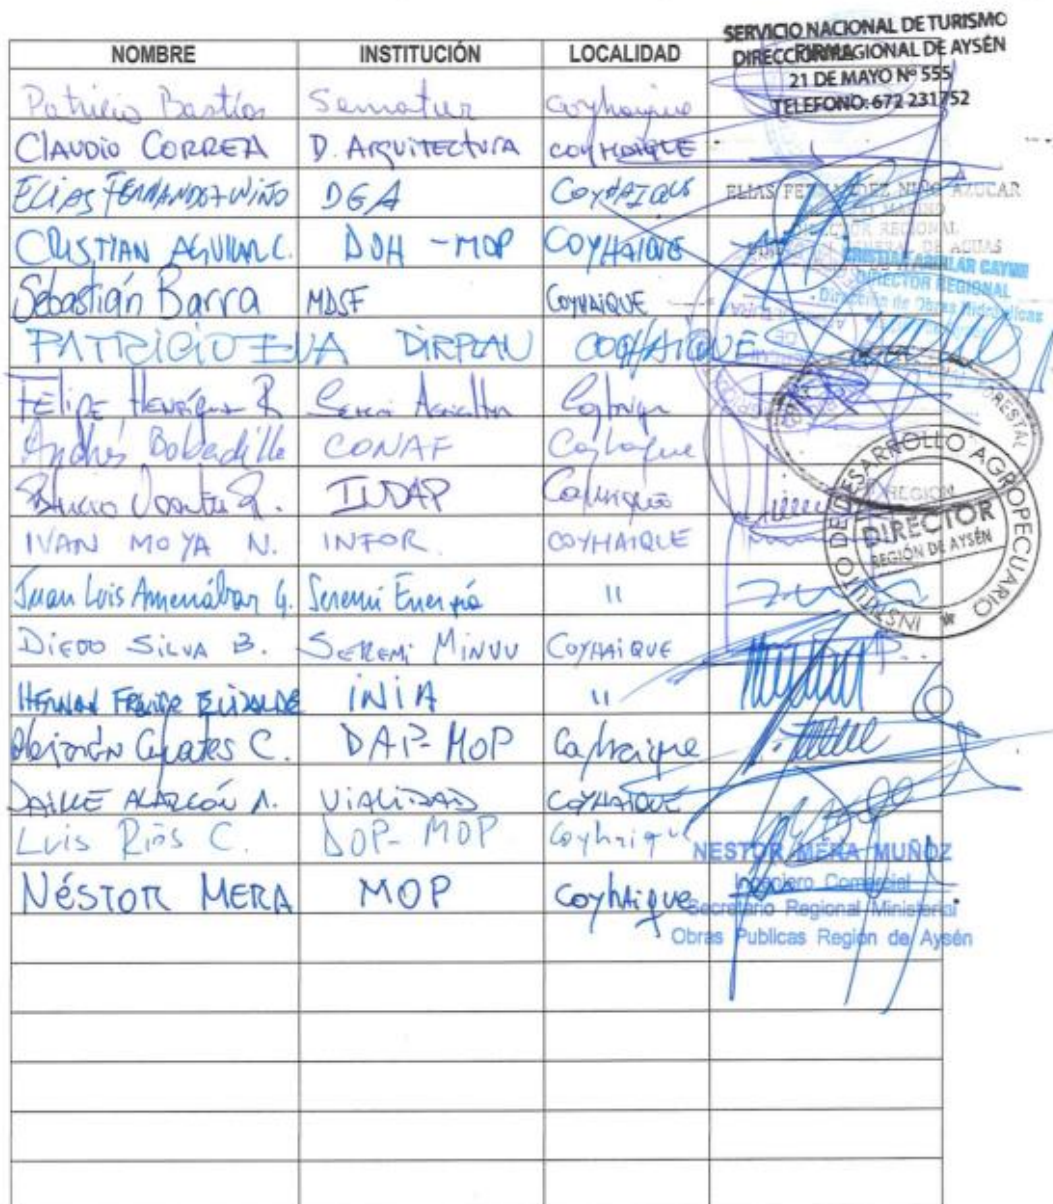 SERVICIO NACIONAL DE TURISMO
DIRECCIÓN REGIONAL DE AYSÉN
21 DE MAYO Nº 555
TELEFONO: 672 231752
NOMBRE INSTITUCIÓN LOCALIDAD FIRMA
Patricio Bastías Sernatur Coyhaique
CLAUDIO CORREA D. ARQUITECTURA COYHAIQUE
ELIAS FERNANDEZ NIÑO DGA COYHAIQUE
ELIAS FERNANDEZ NIÑO AZUCAR
DIRECTOR REGIONAL
DIRECCION GENERAL DE AGUAS
CRISTIAN AGUILAR C. DOH - MOP COYHAIQUE
CRISTIAN AGUILAR CAYUN
DIRECTOR REGIONAL
Dirección de Obras Hidráulicas
Sebastián Barra MDSF COYHAIQUE
PATRICIO DIRPLAN COYHAIQUE
Felipe Henríquez R Seremi Agricultura Coyhaique
Andrés Bobadilla CONAF Coyhaique
FORESTAL
REGION
INDAP Coyhaique
INSTITUTO DE DESARROLLO AGROPECUARIO
DIRECTOR
REGIÓN DE AYSÉN
IVAN MOYA N. INFOR. COYHAIQUE
Juan Luis Amenábar G. Seremi Energía "
DIEGO SILVA B. SEREMI MINVU COYHAIQUE
HERNAN ELIZALDE INIA "
C. DAP-MOP Coyhaique
ALARCÓN A. VIALIDAD COYHAIQUE
Luis Ríos C. DOP-MOP Coyhaique
NÉSTOR MERA MOP Coyhaique
NESTOR MERA MUÑOZ
Ingeniero Comercial
Secretario Regional Ministerial
Obras Publicas Region de Aysén